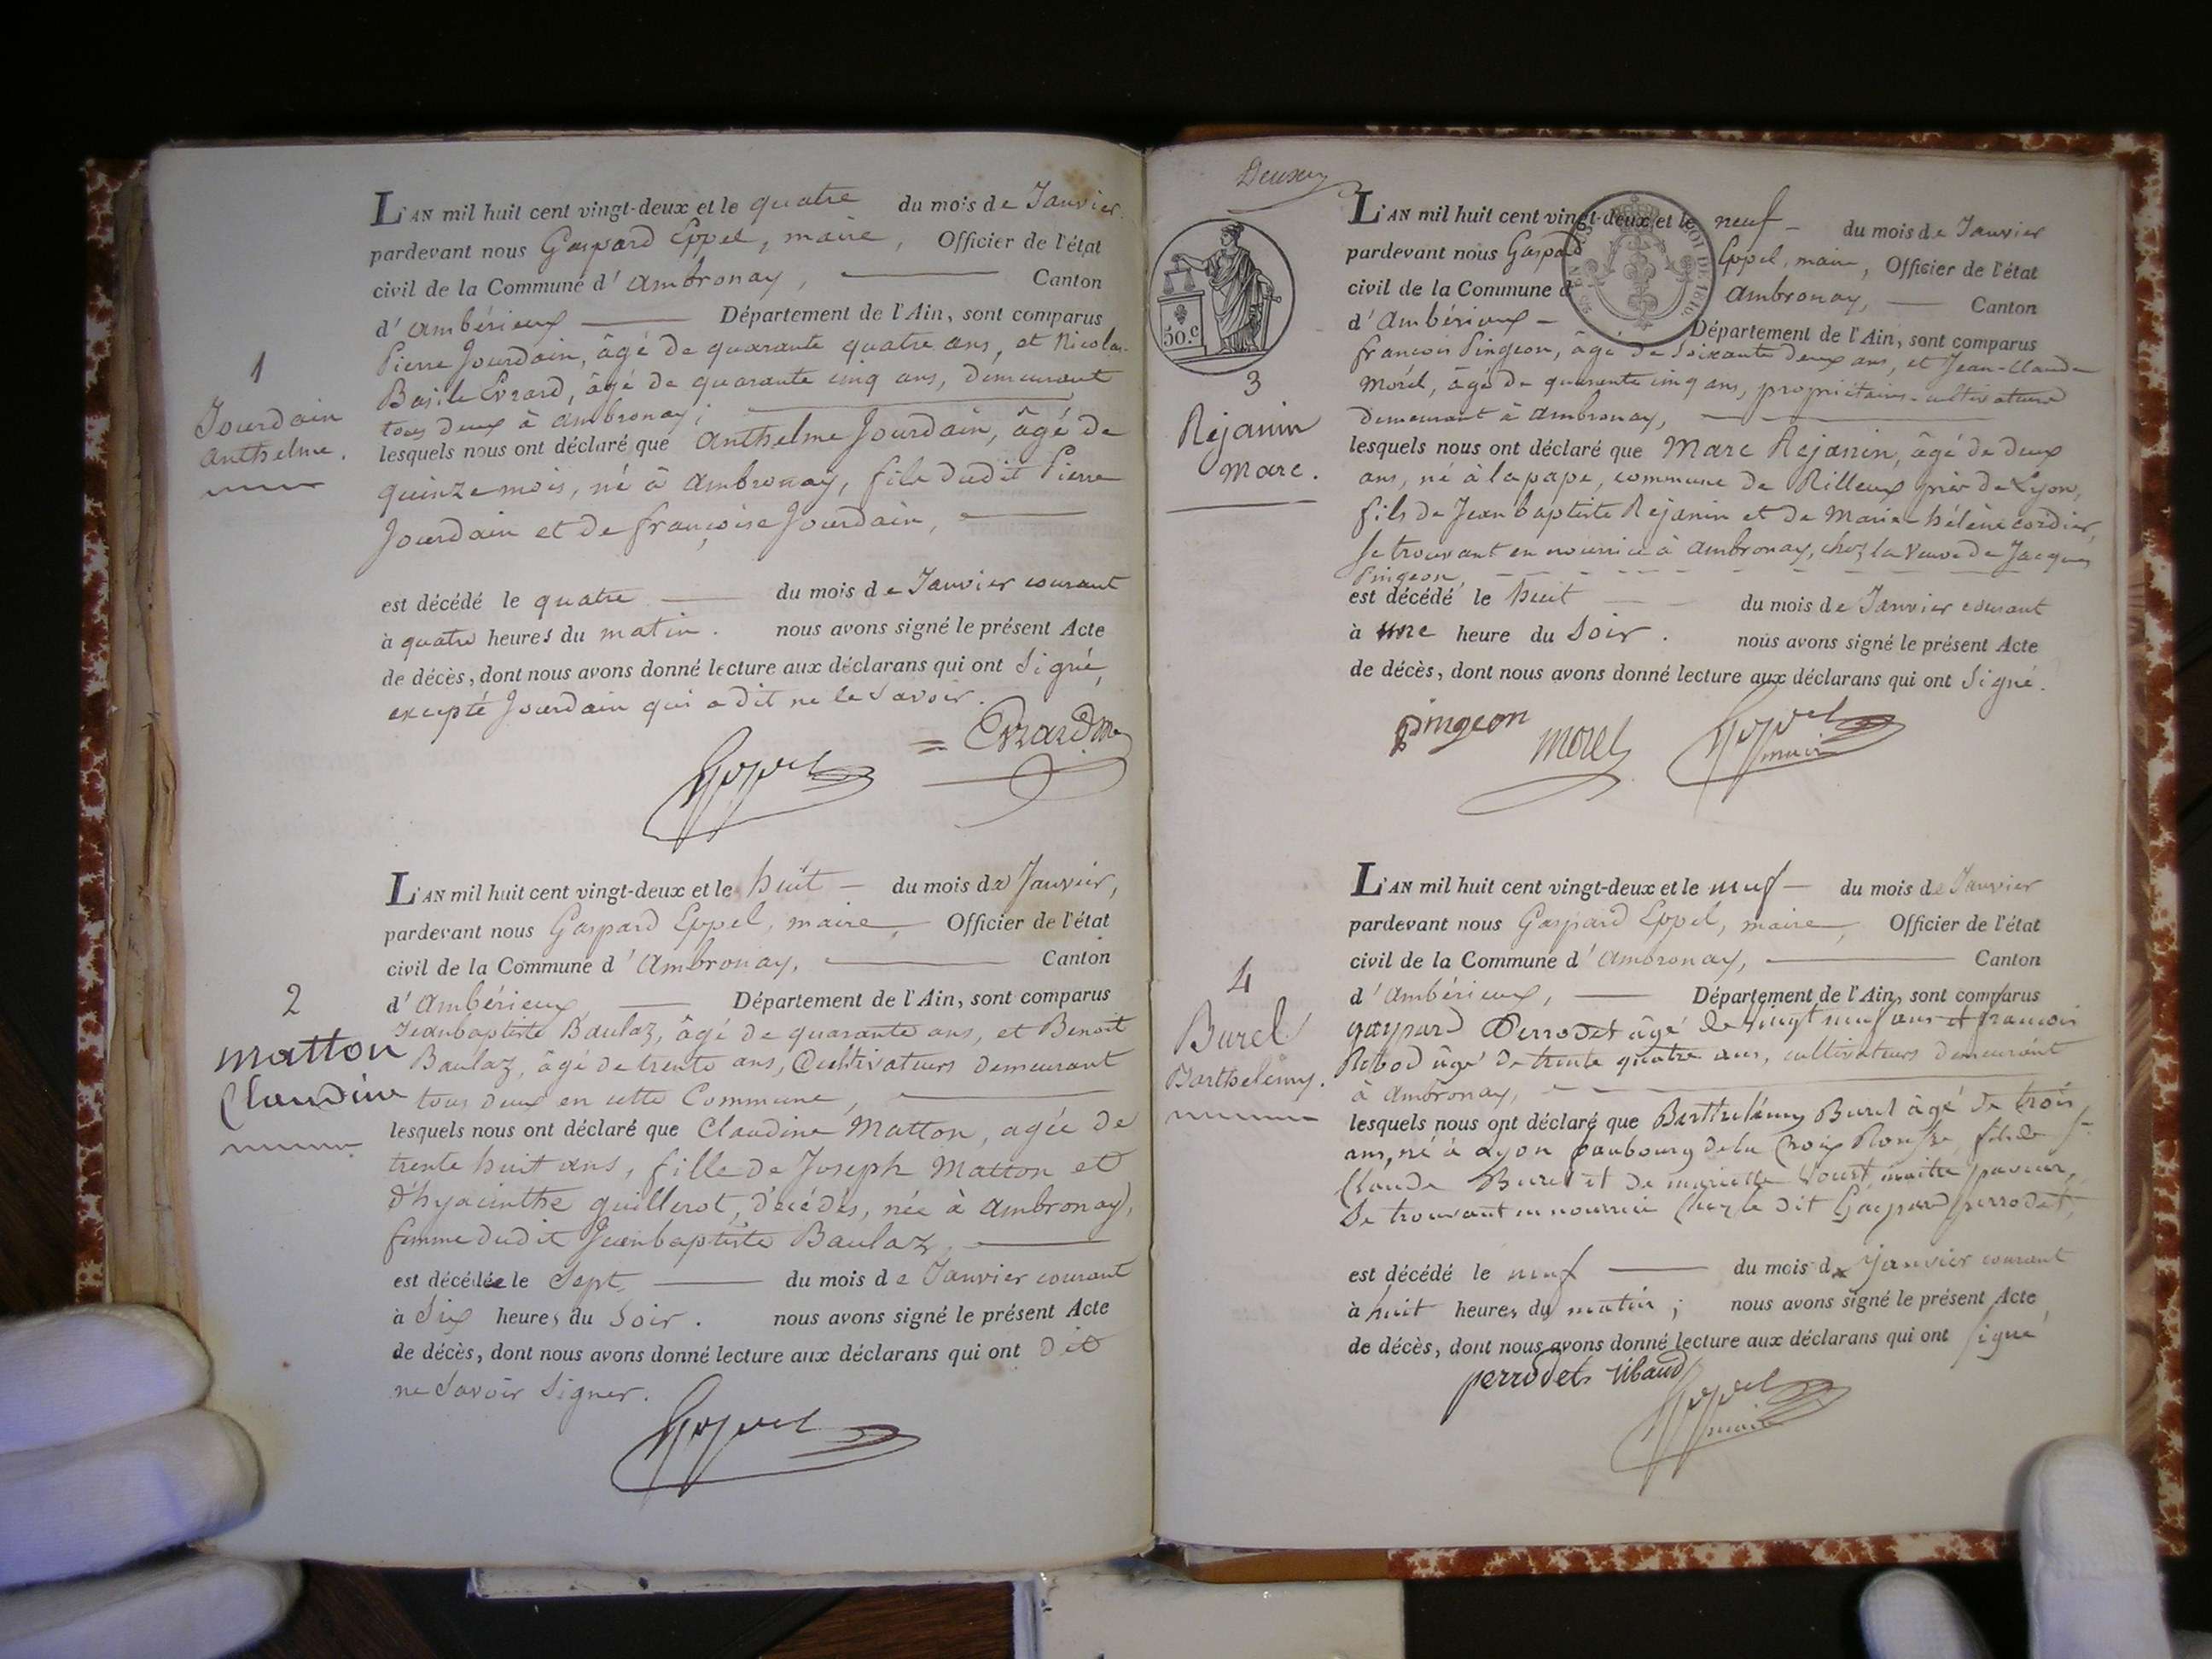 L'AN mil huit cent vingt-deux et le quatre du mois de Janvier
pardevant nous Gaspard Eppel, maire, Officier de l'état
civil de la Commune d'ambronay, Canton
d'ambérieux Département de l'Ain, sont comparus
Pierre Jourdain, âgé de quarante quatre ans, et Nicolas-
Basile Evrard, âgé de quarante cinq ans, demeurant
tous deux à ambronay;
1
Jourdain
anthelme.
lesquels nous ont déclaré que anthelme Jourdain, âgé de
quinze mois, né à ambronay, fils dudit Pierre
Jourdain et de françoise Jourdain,
est décédé le quatre du mois de Janvier courant
à quatre heures du matin. nous avons signé le présent Acte
de décès, dont nous avons donné lecture aux déclarans qui ont signé,
excepté Jourdain qui a dit ne le savoir.
Evrard
Eppel
L'AN mil huit cent vingt-deux et le huit du mois de Janvier,
pardevant nous Gaspard Eppel, maire, Officier de l'état
civil de la Commune d'ambronay, Canton
d'ambérieux Département de l'Ain, sont comparus
Jeanbaptiste Baulaz, âgé de quarante ans, et Benoit
Baulaz, âgé de trente ans, Cultivateurs demeurant
tous deux en cette Commune,
2
matton
Claudine
lesquels nous ont déclaré que Claudine Matton, agée de
trente huit ans, fille de Joseph Matton et
d'hyacinthe guillerot, décédés, née à ambronay,
femme dudit Jeanbaptiste Baulaz,
est décédée le Sept du mois de Janvier courant
à Six heures du Soir. nous avons signé le présent Acte
de décès, dont nous avons donné lecture aux déclarans qui ont dit
ne savoir signer.
Eppel
Deuxe
50.c
L'AN mil huit cent vingt-deux et le neuf du mois de Janvier
pardevant nous Gaspard Eppel, maire, Officier de l'état
civil de la Commune d'ambronay, Canton
d'ambérieux Département de l'Ain, sont comparus
françois Pingeon, âgé de soixante deux ans, et Jean-Claude
Morel, âgé de quarente cinq ans, propriétaires-cultivateurs
demeurant à ambronay,
3
Réjanin
Marc.
lesquels nous ont déclaré que Marc Rejanin, âgé de deux
ans, né à la pape, commune de Rilleux près de Lyon,
fils de Jean baptiste Rejanin et de Marie hélène cordier,
se trouvant en nourrice à ambronay, chez la Veuve de Jacques
Pingeon,
est décédé le huit du mois de Janvier courant
à une heure du Soir. nous avons signé le présent Acte
de décès, dont nous avons donné lecture aux déclarans qui ont signé.
pingeon morel Eppel
maire
L'AN mil huit cent vingt-deux et le neuf du mois de Janvier
pardevant nous Gaspard Eppel, maire, Officier de l'état
civil de la Commune d'ambronay, Canton
d'ambérieux, Département de l'Ain, sont comparus
gaspard Perrodet âgé de vingt neuf ans et francois
âgé de trente quatre ans, cultivateurs demeurant
à ambronay,
4
Burel
Barthelemy.
lesquels nous ont déclaré que Barthelémy Burel âgé de trois
ans, né à Lyon faubourg de la Croix Rousse, fils de
Claude Burel et de mariette maitre
Se trouvant en nourrice chez le dit Gaspard perrodet,
est décédé le neuf du mois de janvier courant
à huit heures du matin; nous avons signé le présent Acte
de décès, dont nous avons donné lecture aux déclarans qui ont signé
perrodet ribaud
Eppel
maire